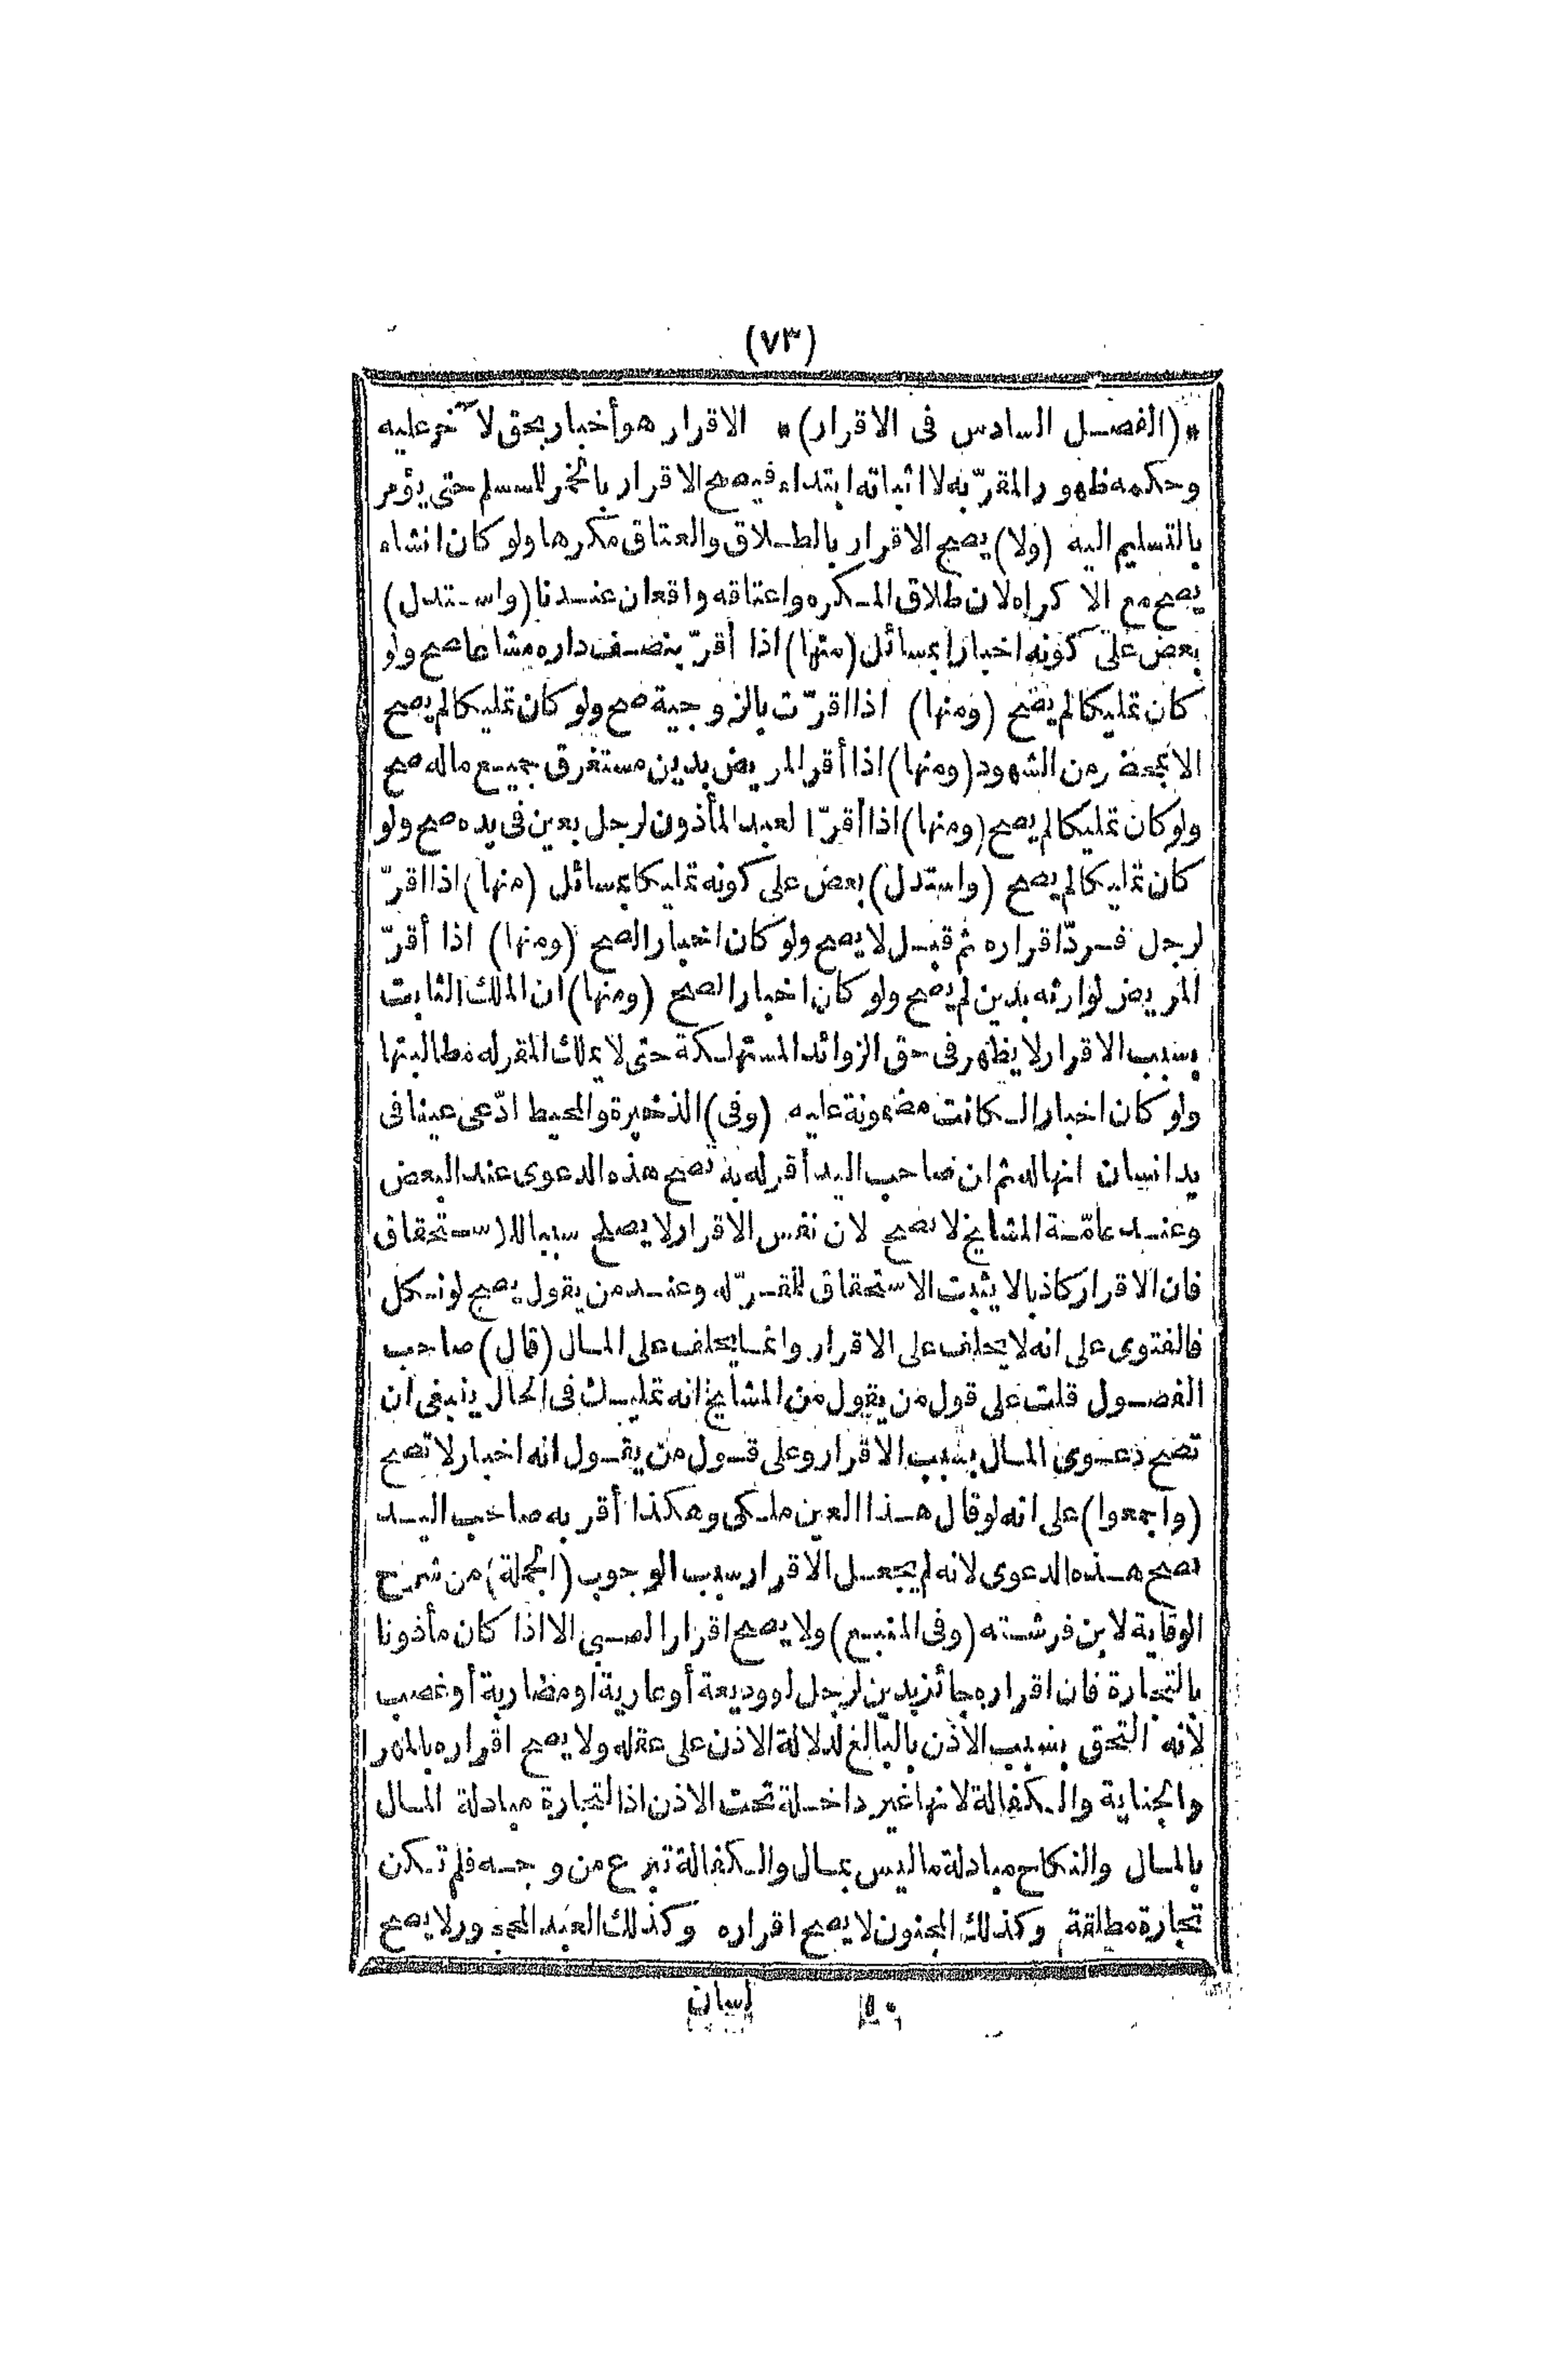 (٧٣)
* (الفصل السادس فى الاقرار) * الاقرار هو أخبار بحق لآخر عليه
وحكمه ظهور المقرّ به لا اثباته ابتداء فيصح الاقرار بالخمر للمسلم حتى يؤمر
بالتسليم اليه (ولا) يصح الاقرار بالطلاق والعتاق مكرها ولو كان انشاء
يصح مع الاكراه لان طلاق المكره واعتاقه واقعان عندنا (واستدل)
بعض على كونه اخبارا بمسائل (منها) اذا أقرّ بنصف داره مشاعا صح ولو
كان تمليكا لم يصح (ومنها) اذا اقرّت بالزوجية صح ولو كان تمليكا لم يصح
الا بمحضر من الشهود (ومنها) اذا أقر المريض بدين مستغرق بجميع ماله صح
ولو كان تمليكا لم يصح (ومنها) اذا أقرّ العبد المأذون لرجل بعين فى يده صح ولو
كان تمليكا لم يصح (واستدل) بعض على كونه تمليكا بمسائل (منها) اذا اقرّ
لرجل فردّ اقراره ثم قبل لا يصح ولو كان اخبارا لصح (ومنها) اذا أقرّ
المريض لوارثه بدين لم يصح ولو كان اخبارا لصح (ومنها) ان الملك الثابت
بسبب الاقرار لا يظهر فى حق الزوائد المستهلكة حتى لا يملك المقر له مطالبتها
ولو كان اخبارا لكانت مضمونة عليه (وفى) الذخيرة والمحيط ادّعى عينا فى
يد انسان انها له ثم ان صاحب اليد أقر له به تصح هذه الدعوى عند البعض
وعند عامّة المشايخ لا تصح لان نفس الاقرار لا يصلح سببا للاستحقاق
فان الاقرار كاذبا لا يثبت الاستحقاق للمقرّ له وعند من يقول يصح لو نكل
فالفتوى على انه لا يحلف على الاقرار وانما يحلف على المال (قال) صاحب
الفصول قلت على قول من يقول من المشايخ انه تمليك فى الحال ينبغى ان
تصح دعوى المال بسبب الاقرار وعلى قول من يقول انه اخبار لا تصح
(واجمعوا) على انه لو قال هذا العين ملكى وهكذا أقر به صاحب اليد
تصح هذه الدعوى لانه لم يجعل الاقرار سبب الوجوب (الجملة) من شرح
الوقاية لابن فرشته (وفى المنبع) ولا يصح اقرار الصبى الا اذا كان مأذونا
بالتجارة فان اقراره جائز بدين لرجل او وديعة أو عارية او مضاربة أو غصب
لأنه التحق بسبب الاذن بالبالغ لدلالة الاذن على عقله ولا يصح اقراره بالمهر
والجناية والكفالة لانها غير داخلة تحت الاذن اذ التجارة مبادلة المال
بالمال والنكاح مبادلة ما ليس بمال والكفالة تبرع من وجه فلم تكن
تجارة مطلقة وكذلك المجنون لا يصح اقراره وكذلك العبد المحجور لا يصح
١٠ لسان